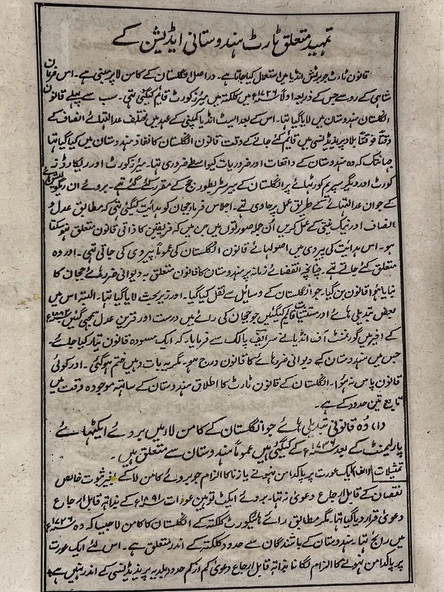 تمہید متعلق ٹارٹ ہندوستانی ایڈیشن کے
قانون ٹارٹ جو برٹش انڈیا میں استعمال کیا جاتا ہے۔ دراصل انگلستان کے کامن لا پر مبنی ہے۔ اس فرمان
شاہی کے رو سے جس کے ذریعہ اولاً ۱۷۲۶ء میں کلکتہ میں میئرز کورٹ قائم کیگئی تہی۔ سب سے پہلے قانون
انگلستان ہندوستان میں لایا گیا تہا۔ اس کے بعد ایسٹ انڈیا کمپنی کے عہد میں مختلف عدالتہائے انصاف کے
وقتاً فوقتاً بلاد پریذیڈنسی میں قائم کئے جانے کے وقت قانون انگلستان کا نفاذ ہندوستان میں کیا گیا تہا
جہانتک کہ وہ ہندوستان کے واقعات اور ضروریات کیواسطے ضروری تہا۔ میئرز کورٹ اور ریکارڈرز
کورٹ اور دیگر سپریم کورٹہائے پر انگلستان کے بیرسٹر بطور جج کے مقرر کئے گئے تہے۔ بروئے ان
کے جو ان عدالتہائے کے طریق عمل پر حاوی تہے۔ اجلاس فرما ججان کو ہدایت کیگئی تہی کہ مطابق عدل و
انصاف اور نیک نیتی کے عمل کریں ان جملہ صورتوں میں جن میں کہ فریقین کا ذاتی قانون متعلق نہو سکتا
ہو۔ اس ہدایت کی پیروی میں اصولہائے قانون انگلستان کی عموماً پیروی کی جاتی تہی۔ اور وہ
متعلق کئے جاتے تہے چنانچہ انقضائے زمانہ پر ہندوستان کا قانون متعلق بہ دیوانی ضرر ہائے ججان کا
بنایا ہوا قانون بن گیا۔ جو انگلستان کے وسائل سے نقل کیا گیا۔ اور زیر بحث لایا گیا تہا۔ البتہ اس میں
بعض تبدیلی ہائے اور مستثنیات قائم کیگئیں جو ججان کی رائے میں درست اور قرین عدل سمجہی گئیں۔ ۱۸۸۲ء
کے اخیر میں گورنمنٹ آف انڈیا نے سر ایف پالک سے فرمایا۔ کہ ایک مسودہ قانون تیار کیا جائے۔
جس میں ہندوستان کے دیوانی ضرر ہائے کا قانون درج ہو۔ مگر یہ بات وہیں ختم ہوگئی۔ اور کوئی
قانون پاس نہ ہوا۔ انگلستان کے قانون ٹارٹ کا اطلاق ہندوستان کے ساتہہ موجودہ وقت میں
تابع تین حدود کے ہے۔
(۱) وہ قانونی تبدیلی ہائے جو انگلستان کے کامن لا میں بروئے ایکٹہائے
پارلیمنٹ کے بعد ۱۷۲۶ء کے کیگئی ہیں عموماً ہندوستان سے متعلق ہیں۔
تمثیلات (الف) ایک عورت پر پاکدامن نہونے یا زنا کا الزام جو بروئے کامن لا کے بغیر ثبوت خالص
نقصان کے قابل ارجاع دعویٰ نہ تہا۔ بروئے ایکٹ توہین عورات ۱۸۹۱ء کے بذاتہ قابل ارجاع
دعویٰ قرار دیا گیا تہا۔ مگر مطابق رائے ہائیکورٹ کلکتہ کے انگلستان کا کامن لا جیسا کہ وہ ۱۷۲۶ء
میں رائج تہا۔ ہندوستان کے باشندگان سے حدود کلکتہ کے اندر متعلق ہے۔ اس لئے ایک عورت
پر پاکدامن نہونے کا الزام لگانا بذاتہ قابل ارجاع دعویٰ کم از کم حدود بلدہ پریذیڈنسی کے اندر نہیں ہے